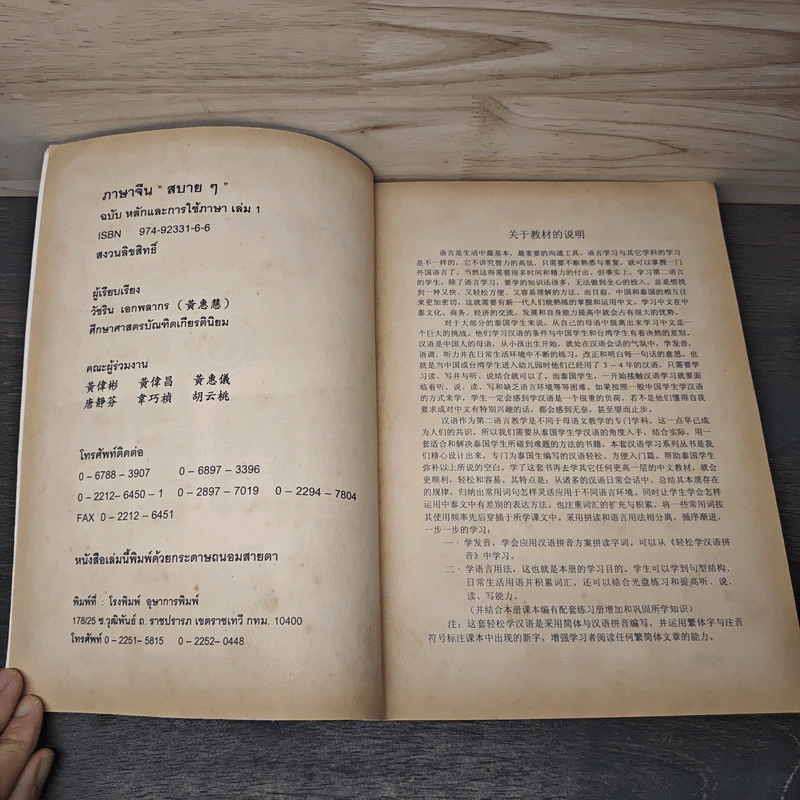 ภาษาจีน " สบาย ๆ "
ฉบับ หลักและการใช้ภาษา เล่ม 1
ISBN 974-92331-6-6
สงวนลิขสิทธิ์
ผู้เรียบเรียง
วัชริน เอกพลากร (黃惠慧)
ศึกษาศาสตรบัณฑิตเกียรตินิยม
คณะผู้ร่วมงาน
黃偉彬 黃偉昌 黃惠儀
唐靜芬 韋巧禎 胡云桃
โทรศัพท์ติดต่อ
0-6788-3907 0-6897-3396
0-2212-6450-1 0-2897-7019 0-2294-7804
FAX 0-2212-6451
หนังสือเล่มนี้พิมพ์ด้วยกระดาษถนอมสายตา
พิมพ์ที่ : โรงพิมพ์ อุษาการพิมพ์
178/25 ซ.วุฒิพันธ์ ถ. ราชปรารภ เขตราชเทวี กทม. 10400
โทรศัพท์ 0-2251-5815 0-2252-0448
关于教材的说明
语言是生活中最基本，最重要的沟通工具。语言学习与其它学科的学习
是不一样的，它不讲究智力的高低，只需要不断熟悉与重复，就可以掌握一门
外国语言了。当然这得需要很多时间和精力的付出。但事实上，学习第二语言
的学生，除了语言学习，要学的知识还很多，无法做到全心的投入，总是想找
到一种又快，又轻松方便，又容易理解的方法。而目前，中国和泰国的相互往
来更加密切，这就需要有新一代人们能熟练的掌握和运用中文。学习中文在中
泰文化、商务、经济的交流，发展和自身能力提高中就会占有很大的优势。
对于大部分的泰国学生来说，从自己的母语中脱离出来学习中文是一
个巨大的挑战。他们学习汉语的条件与中国学生和台湾学生有着决然的差别。
汉语是中国人的母语，从小孩出生开始，就处在汉语会话的气氛中，学发音，
语调，听力并在日常生活环境中不断的练习，改正和明白每一句话的意思。也
就是当中国或台湾学生进入幼儿园时他们已经用了 3－4 年的汉语，只需要学
习读、写并与听、说结合就可以了。而泰国学生，一开始接触汉语学习就要面
临着听、说、读、写和缺乏语言环境等等困难。如果按照一般中国学生学汉语
的方式来学，学生一定会感到学汉语是一个很重的负荷，若不是他们懂得自我
要求或对中文有特别兴趣的话，都会感到无奈，甚至望而止步。
汉语作为第二语言教学是不同于母语文教学的专门学科，这一点早已成
为人们的共识。所以我们需要从泰国学生学汉语的角度入手，结合实际，用一
套适合和解决泰国学生所碰到难题的方法的书籍，本套汉语学习系列丛书是我
们精心设计出来，专门为泰国生编写的汉语轻松、方便入门篇。帮助泰国学生
弥补以上所说的空白。学了这套书再去学其它任何更高一层的中文教材，就会
更顺利，轻松和容易。其特点是：从诸多的汉语日常会话中，总结其本质存在
的规律，归纳出常用词句怎样灵活应用于不同语言环境。同时让学生学会怎样
运用中泰文中有差别的表达方法。也注重词汇的扩充与积累，将一些常用词按
其使用频率先后穿插于所学课文中。采用拼读和语言用法相分离，循序渐进，
一步一步的学习：
一 · 学发音，学会应用汉语拼音方案拼读字词。可以从《轻松学汉语拼
音》中学习。
二 · 学语言用法，这也就是本册的学习目的。学生可以学到句型结构、
日常生活用语并积累词汇，还可以结合光盘练习和提高听、说、
读、写能力。
（并结合本册课本编有配套练习册增加和巩固所学知识）
注：这套轻松学汉语是采用简体与汉语拼音编写，并运用繁体字与注音
符号标注课本中出现的新字，增强学习者阅读任何繁简体文章的能力。